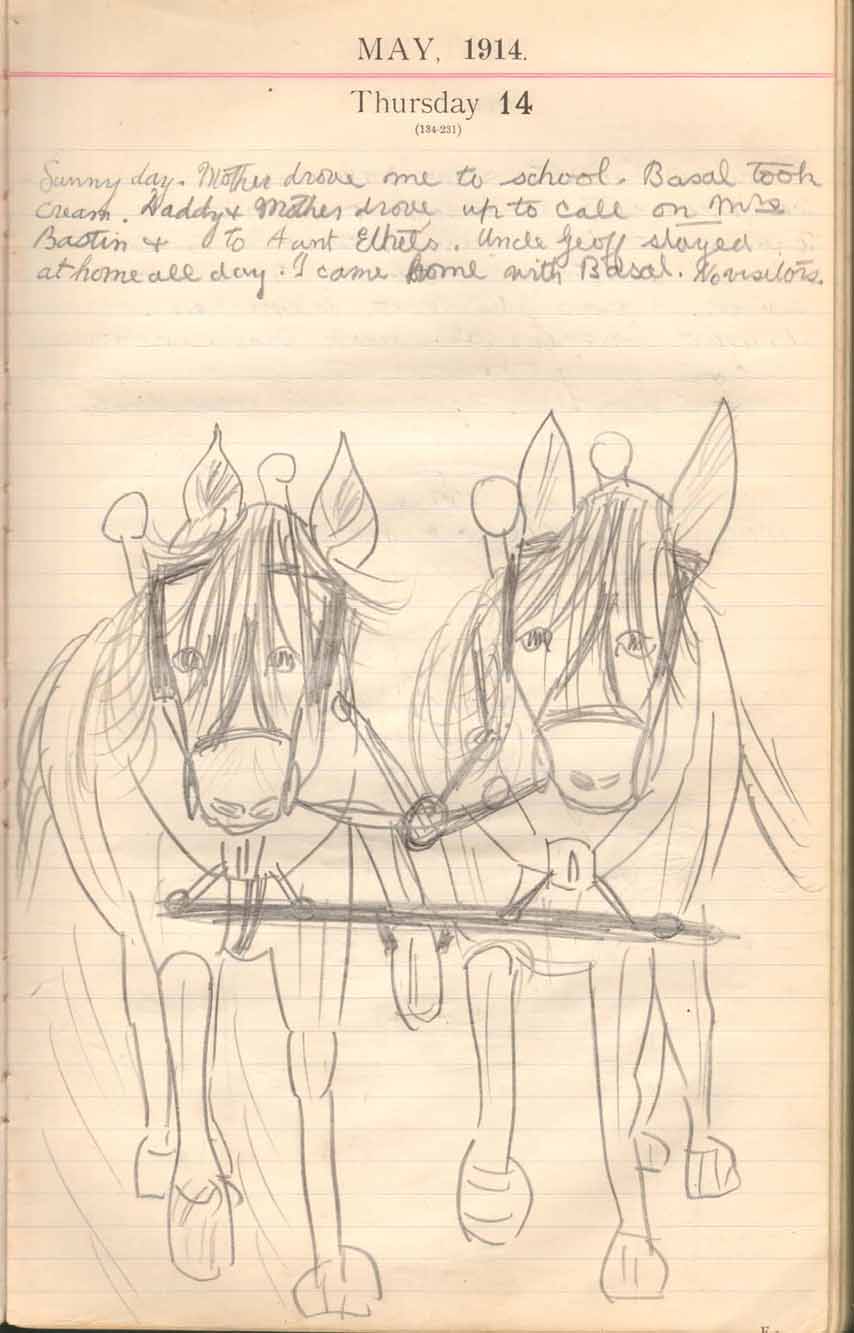 MAY, 1914.
Thursday 14
(134-231)
Sunny day. Mother drove me to school. Basal took
cream. Daddy & Mother drove up to call on Mrs
Bastin & to Aunt Ethels. Uncle Geoff stayed
at home all day. I came home with Basal. No visitors.